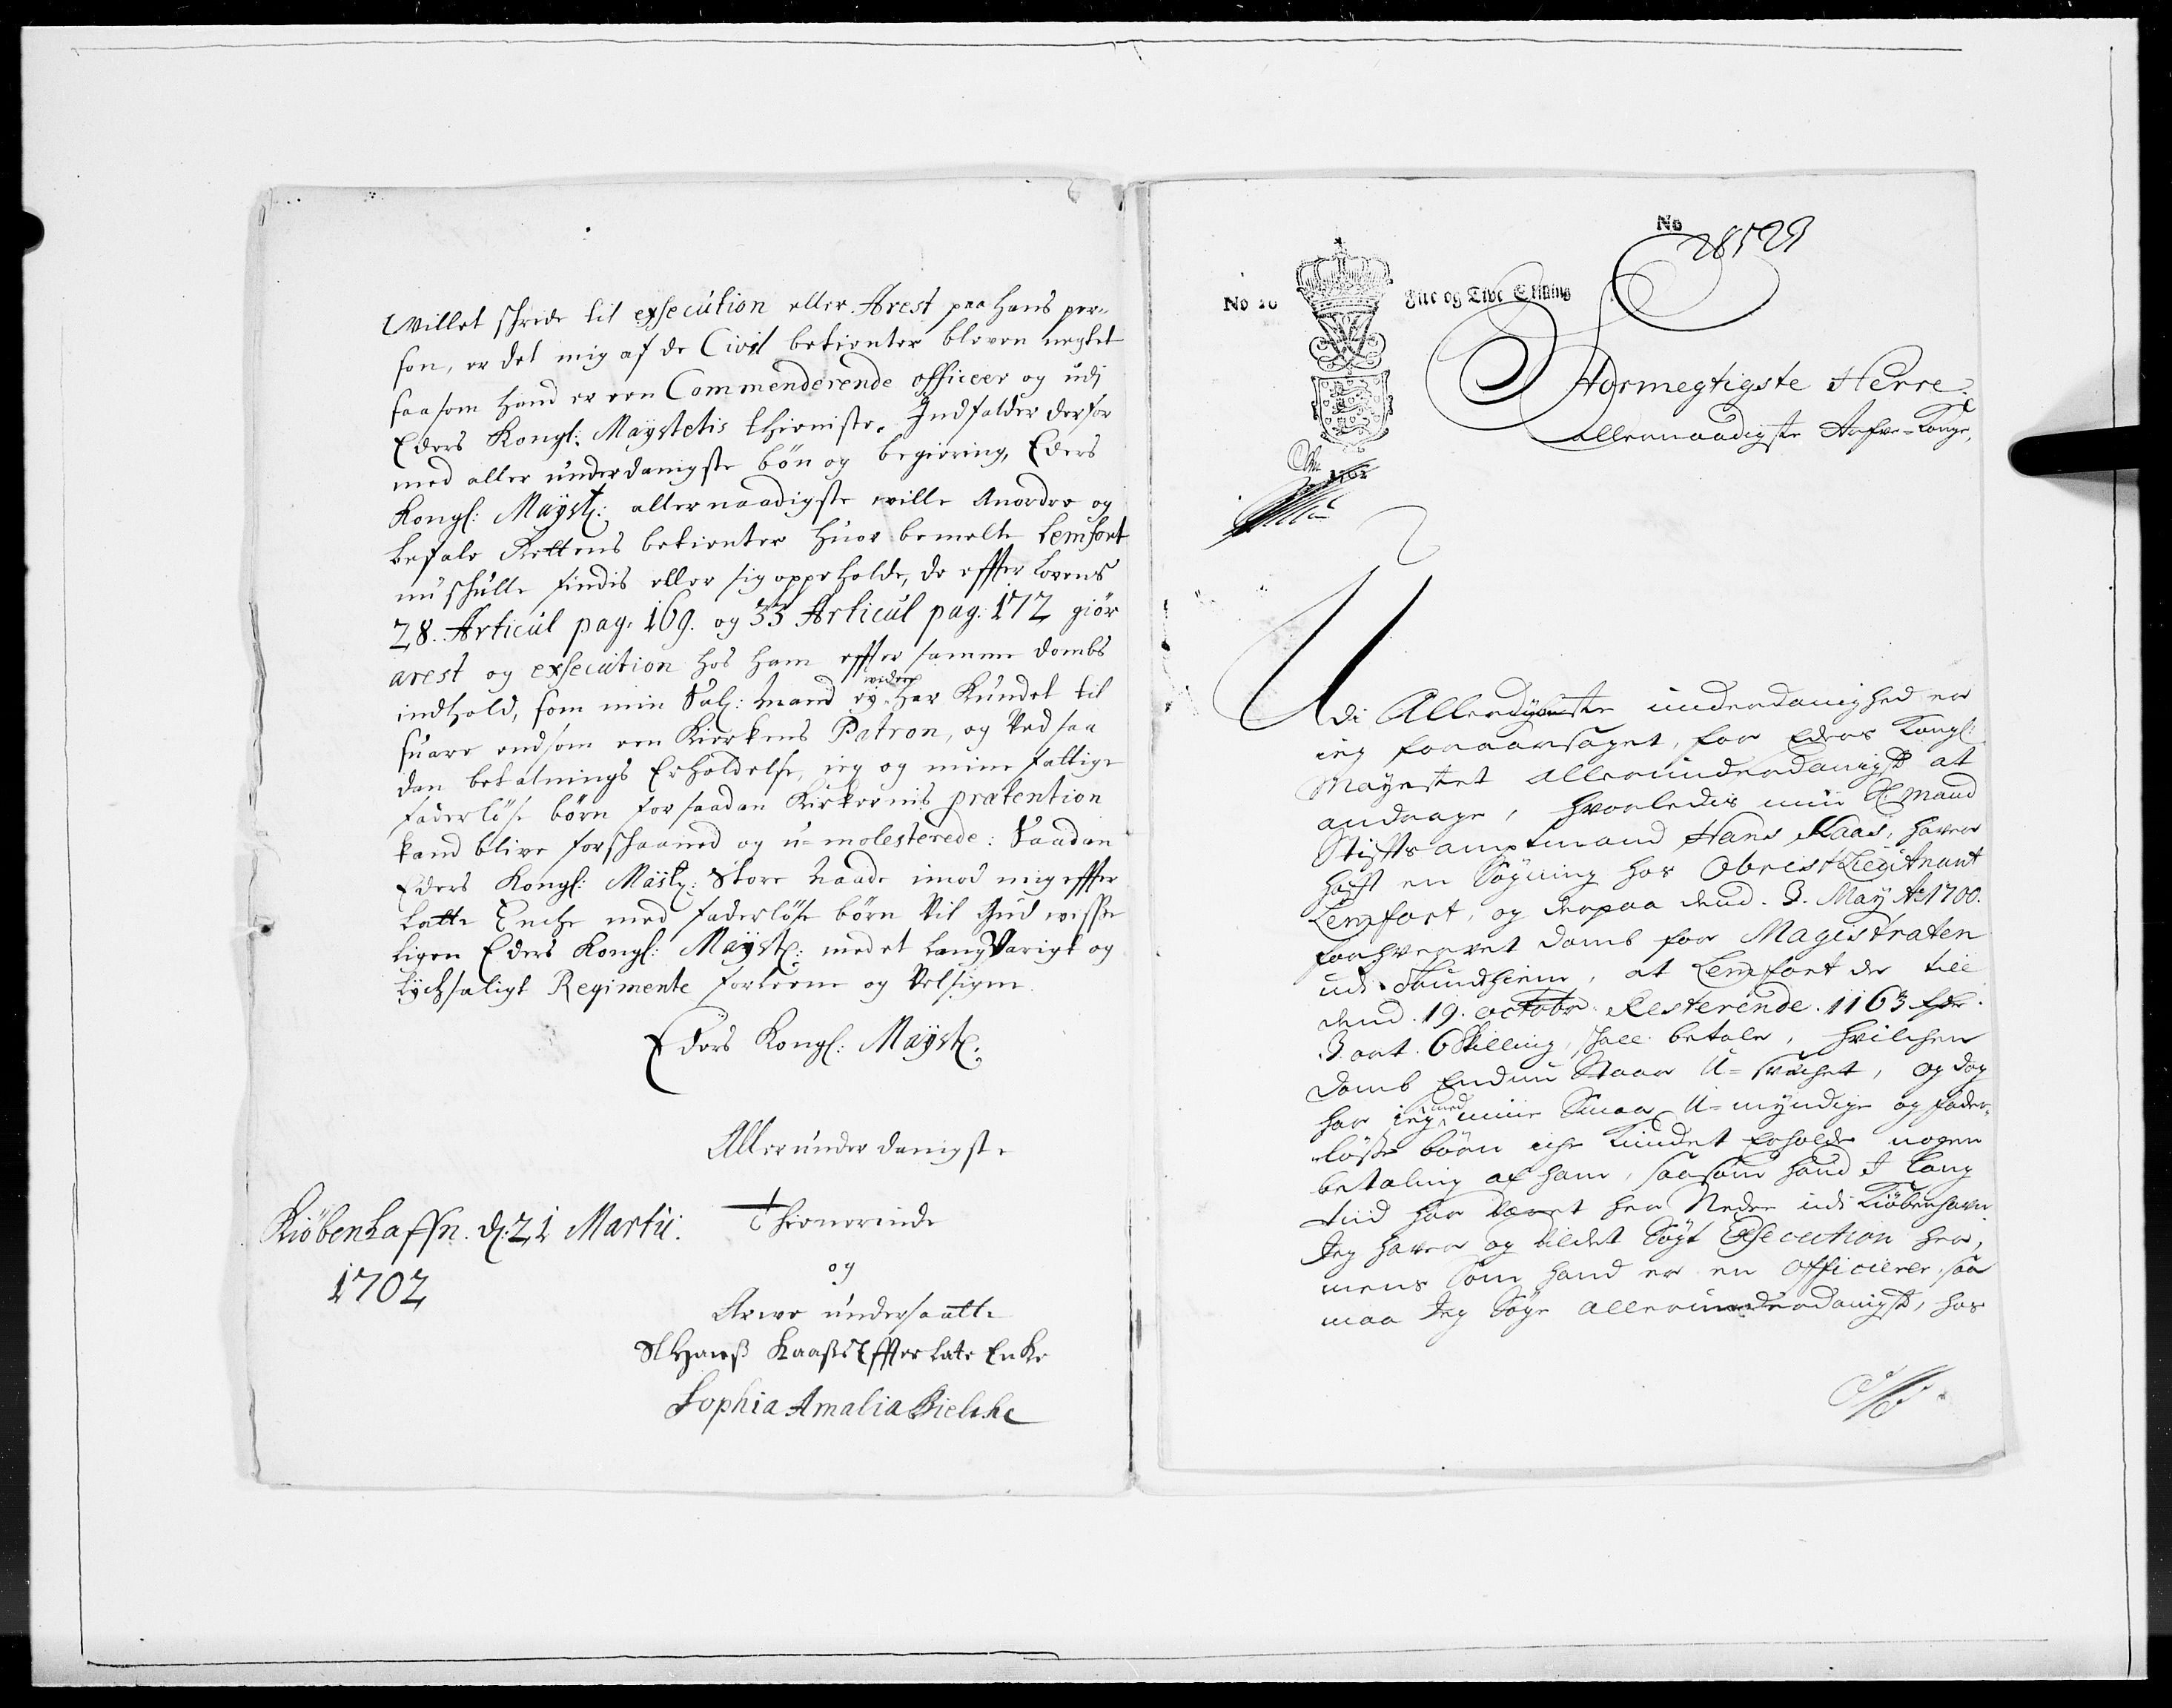 Willet schride til exsecution eller Arest paa hans per-
son, er det mig af de Civil betienter bleven negtet
saasom hand er een Commenderende officeer og udj
Eders Kongl: Maÿstetis thieniste. Indfalder derfor
med aller underdanigste bön og begiering, Eders
Kongl: Maÿst: allernaadigste wille Anordre og
befale Rettens betienter huor bemelte Lemfort
nu schulle findis eller sig oppeholde, de effter Lovens
28. Articul pag. 169. og 33 Articul pag: 172 giör
arest og exsecution hos ham effter samme dombs
indhold, som min Sal: Mand eÿ wider har Kundet til
suare endsom een Kierkens Patron, og Ved saa
dan betalnings Erholdelse, ieg og mine fattige
faderlöse börn for saadan Kirkernis prætention
kand blive forschaaned og u-molesterede: Saadan
Eders Kongl: Maÿst: Store Naade imod mig effter
Latte Enche med faderlöse börn Vil Gud wisse
ligen Eders Kongl: Maÿst: med et Langvarigt og
Lÿchsaligt Regimente forleene og Velsigne.
Eders Kongl: Maÿst:
Allerunderdanigste
Thienerinde
og
Arwe undersaatte
Sl Hanß Kaaßs Effterlate Enke
Sophia Amalia Bielche
Kiöbenhaffn. d: 21 Martii.
1702
No
28523
No 20
Fire og Tive Skilling
1702
Stormegtigste Herre
Allernaadigste Arfve-Konge,
Udi Allerdÿbeste underdanighed er
ieg foraarsaget, for Eders Kongl:
Mayestet allerunderdanigst at
andrage, hvorledis min Sl: Mand
Stifftsamptmand Hans Kaas, haver
hafft en Sögning hos Obrist Lieutnant
Lemfort, og derpaa dend. 3. May Ao 1700.
forhvervet domb for Magistraten
udi Trundhiem, at Lemfort de till
dend. 19. octobr. Resterende. 1163 rdr.
3 ort. 6 Skilling, skall betale, hvilchen
domb Endnu Staar U-svechet, og dog
har ieg med mine Smaa U-mÿndige og fader-
lösse börn iche kundet Erholde nogen
betaling af ham, saasom hand I lang
tiid har været her Neder udi Kiöbenhavn
Jeg haver og vildet Sögt Execution her,
mens Som hand er en Officierer, saa
maa Jeg Söge allerunderdanigst, hos